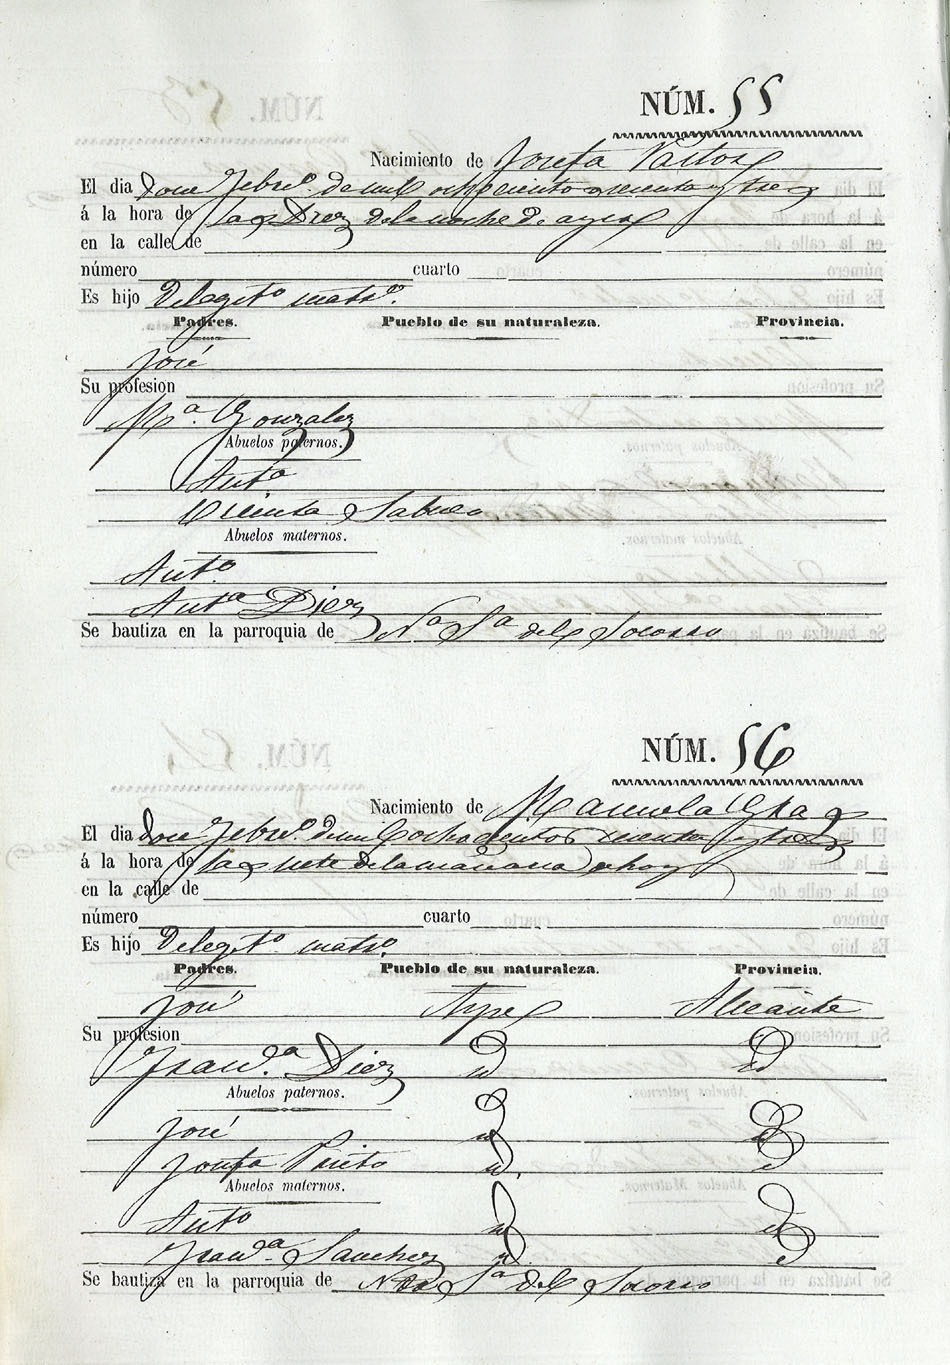 NÚM. 55
Nacimiento de Josefa Pastor
El dia doce Febro. de mil ochociento sesenta y tres
á la hora de las Diez de la noche de ayer
en la calle de
número cuarto
Es hijo De legito. mato.
Padres. Pueblo de su naturaleza. Provincia.
José
Su profesion
Ma. Gonzalez
Abuelos paternos.
Anta
Vicenta Sabuco
Abuelos maternos.
Anto.
Anta. Diez
Se bautiza en la parroquia de Na Sa del Socorro
NÚM. 56
Nacimiento de Manuela
El dia doce Febro. de mil ochocientos sesenta y tres
á la hora de las siete de la mañana de hoy
en la calle de
número cuarto
Es hijo De legito. mato.
Padres. Pueblo de su naturaleza. Provincia.
José Aspe Alicante
Su profesion
Franca. Diez id id
Abuelos paternos.
José id id
Josefa Prieto id. id
Abuelos maternos.
Anto id id
Franca. Sanchez id id
Se bautiza en la parroquia de Ntra Sa del Socorro